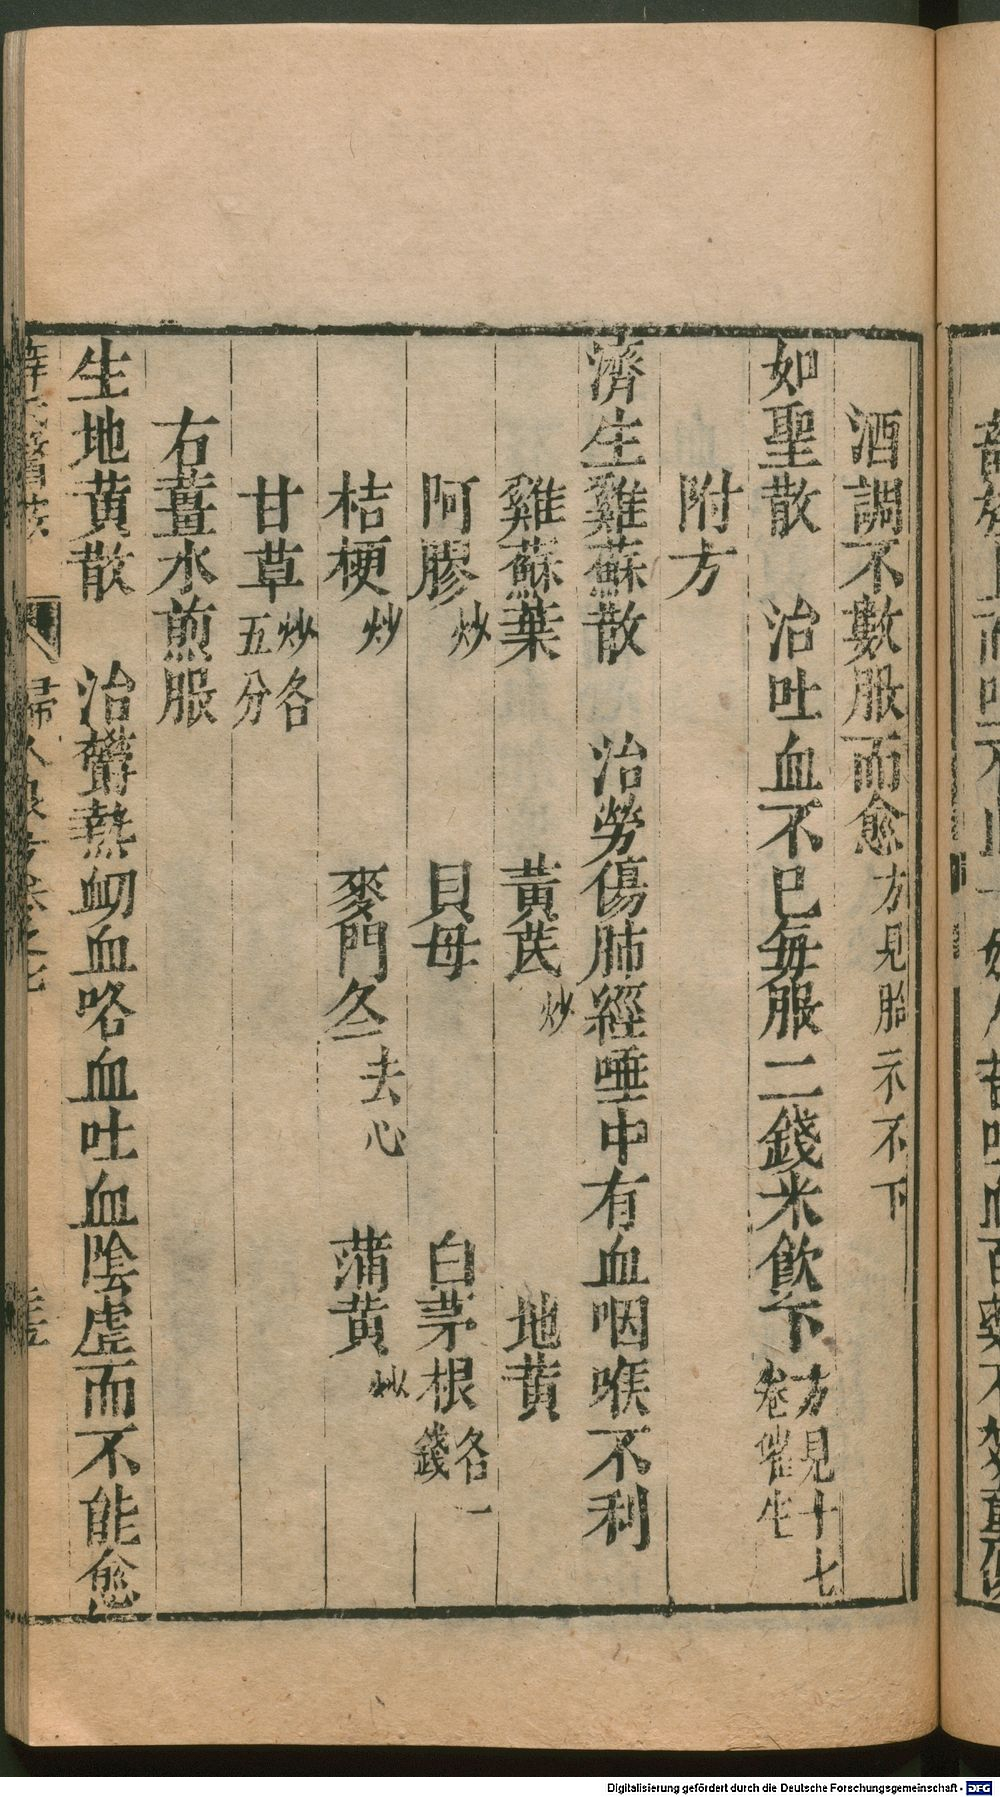 酒調不數服而愈方見胎衣不下
如聖散　治吐血不巳每服二錢米飲下方見十七卷催生
附方
濟生雞蘇散　治勞傷肺經唾中有血咽喉不利
雞蘇葉　黃芪炒　地黃
阿膠炒　貝母　白茅根各一錢
桔梗炒　麥門冬去心　蒲黃炒
甘草炒各五分
右薑水煎服
生地黃散　治欝熱衂血咯血吐血陰虛而不能愈
婦人良方卷之七
Digitalisierung gefördert durch die Deutsche Forschungsgemeinschaft - DFG